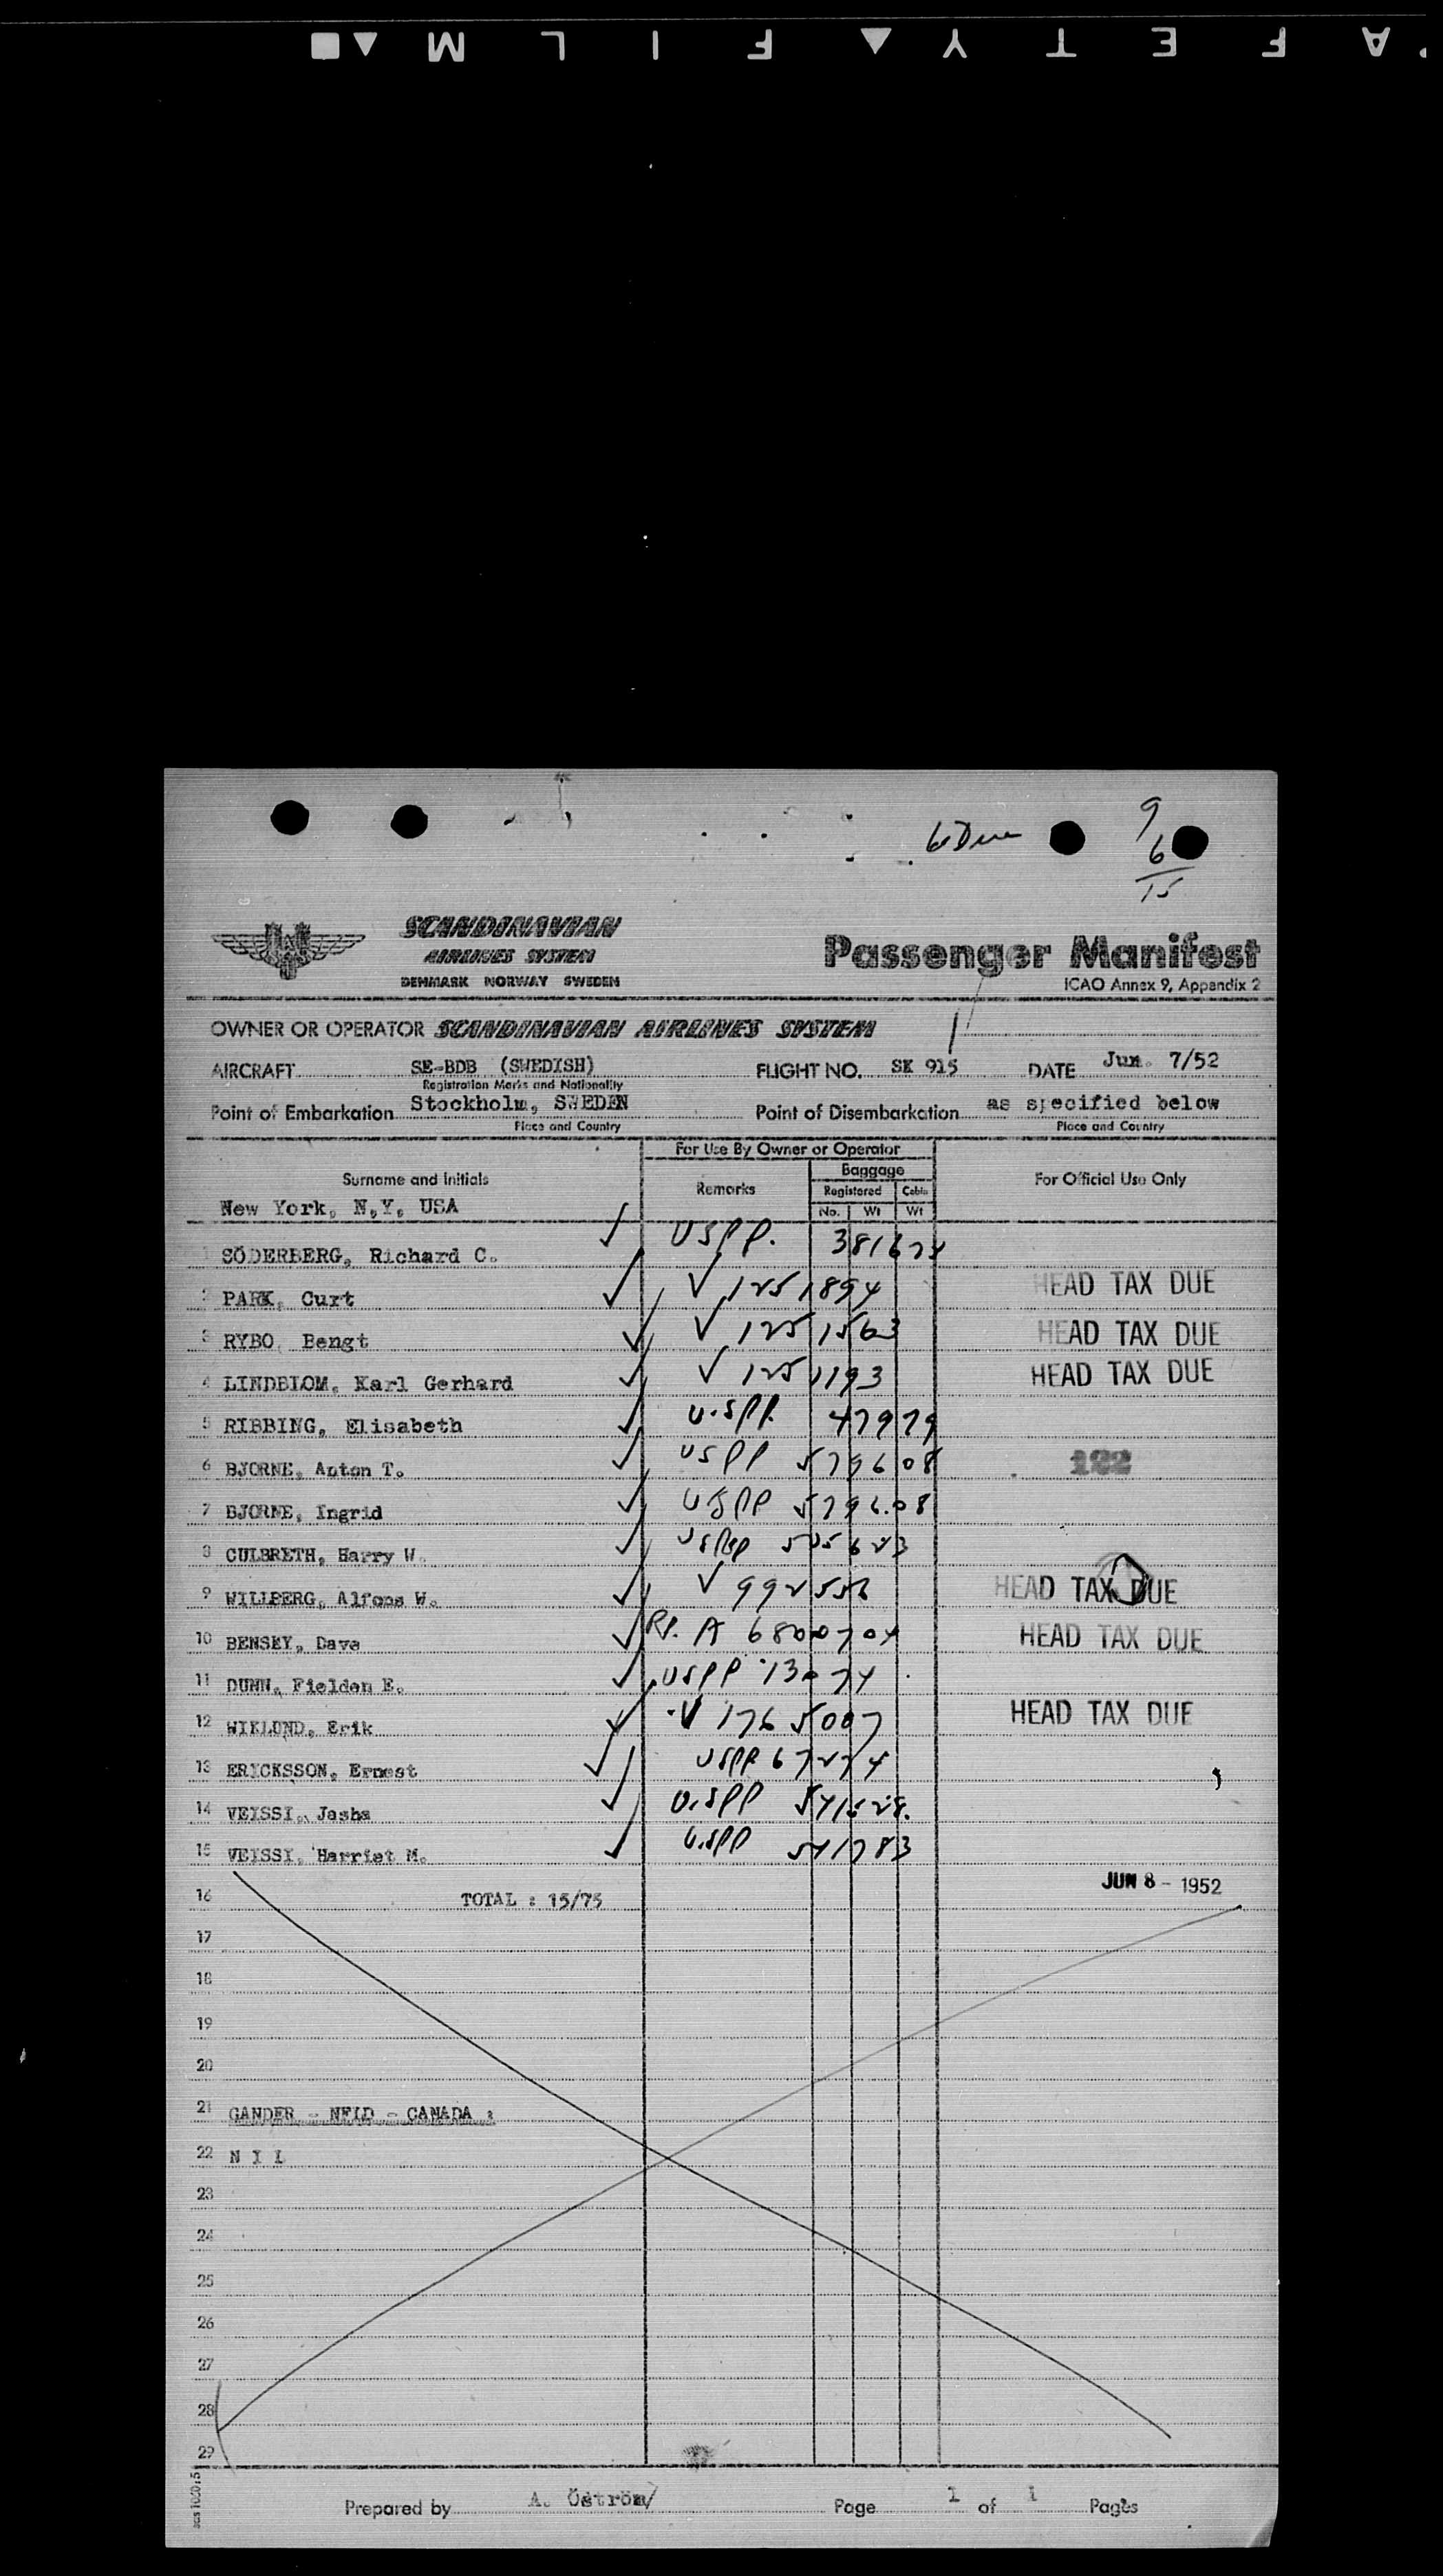 SAFETY FILM
6 Due
9
6
15
SCANDINAVIAN
AIRLINES SYSTEM
DENMARK NORWAY SWEDEN
Passenger Manifest
ICAO Annex 9, Appendix 2
OWNER OR OPERATOR SCANDINAVIAN AIRLINES SYSTEM
AIRCRAFT SE-BDB (SWEDISH) FLIGHT NO. SK 915 DATE Jun. 7/52
Registration Marks and Nationality
Point of Embarkation Stockholm, SWEDEN Point of Disembarkation as specified below
Place and Country Place and Country
For Use By Owner or Operator
Surname and Initials Remarks Baggage For Official Use Only
Registered Cabin
No. Wt Wt
New York, N.Y, USA
1 SÖDERBERG, Richard C. USPP. 381674
2 PARK, Curt V 1251894 HEAD TAX DUE
3 RYBO, Bengt V 1251563 HEAD TAX DUE
4 LINDBLOM, Karl Gerhard V 1251193 HEAD TAX DUE
5 RIBBING, Elisabeth U.SPP. 47979
6 BJORNE, Anton T. USPP 579608 122
7 BJORNE, Ingrid USPP 579608
8 CULBRETH, Harry W. USPP 505623
9 WILLBERG, Alfons W. V 992556 HEAD TAX DUE
10 BENSKY, Dave RP. A 6800704 HEAD TAX DUE
11 DUNN, Fielden E. USPP 13074
12 WIKLUND, Erik V 1765007 HEAD TAX DUE
13 ERICKSSON, Ernest USPP 67274
14 VEISSI, Jasha U.SPP
15 VEISSI, Harriet M. U.SPP 541783
JUN 8 - 1952
16 TOTAL : 15/75
17
18
19
20
21 GANDER - NFLD - CANADA :
22 N I L
23
24
25
26
27
28
29
Prepared by A. Öström/ Page 1 of 1 Pages